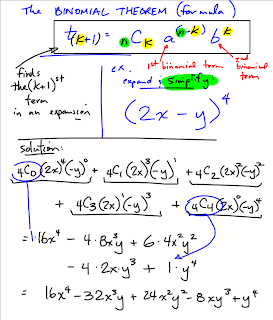 The BINOMIAL THEOREM (formula)
t(k+1) = nCk a^(n-k) b^k
finds the (k+1)st term in an expansion
1st binomial term
2nd binomial term
ex.
expand & simplify
(2x - y)^4
solution:
4C0(2x)^4(-y)^0 + 4C1(2x)^3(-y)^1 + 4C2(2x)^2(-y)^2
+ 4C3(2x)^1(-y)^3 + 4C4(2x)^0(-y)^4
= 1·16x^4 - 4·8x^3y + 6·4x^2y^2
- 4·2x·y^3 + 1·y^4
= 16x^4 - 32x^3y + 24x^2y^2 - 8xy^3 + y^4